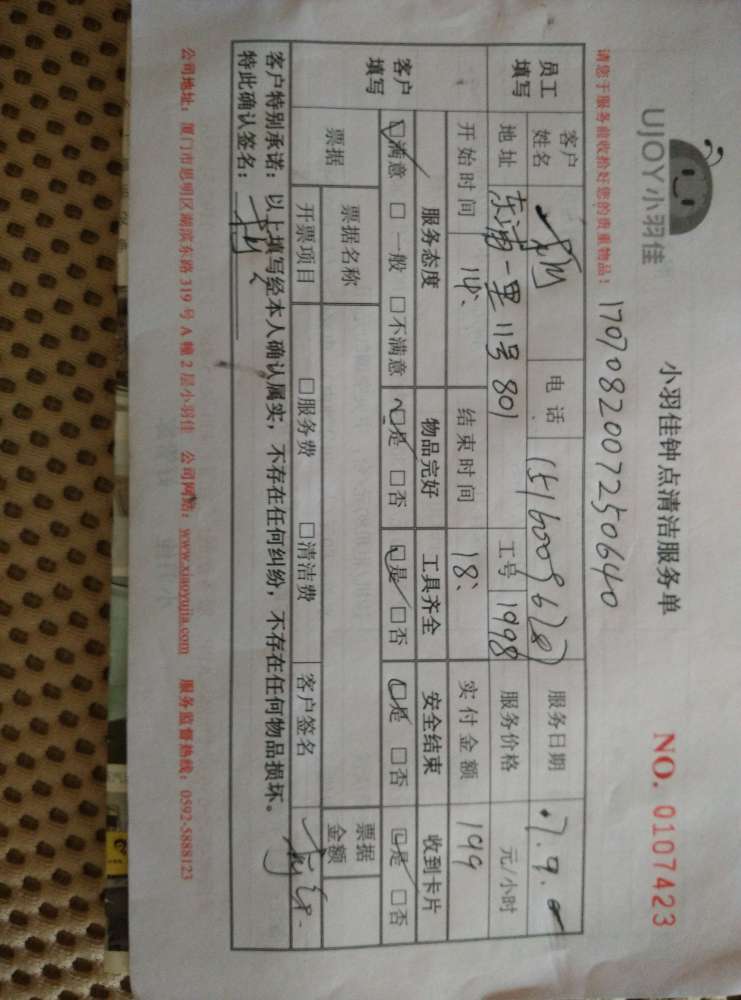 UJOY小羽佳
小羽佳钟点清洁服务单
NO. 0107423
请您于服务前收拾好您的贵重物品!
17070820072 50640
员工填写
客户姓名
电话
服务日期
地址 东浦一里11号 801
工号 1998
服务价格 元/小时
开始时间 14、
结束时间 18、
实付金额 199
客户填写
服务态度 物品完好 工具齐全 安全结束 收到卡片
□满意 □一般 □不满意 □是 □否 □是 □否 □是 □否 □是 □否
票据
票据名称
票据金额
开票项目 □服务费 □清洁费 客户签名
客户特别承诺:以上填写经本人确认属实,不存在任何纠纷,不存在任何物品损坏。
特此确认签名:
公司地址:厦门市思明区湖滨东路 319 号 A 幢 2 层小羽佳 公司网站:www.xiaoyujia.com 服务监督热线:0592-5888123